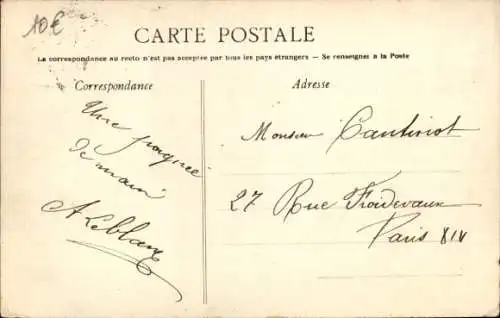 10€
CARTE POSTALE
La correspondance au recto n'est pas acceptée par tous les pays étrangers — Se renseigner à la Poste
Correspondance
Adresse
Une poignée
de main
A Leblanc
Monsieur Cantiniot
27 Rue Froidevaux
Paris XIV